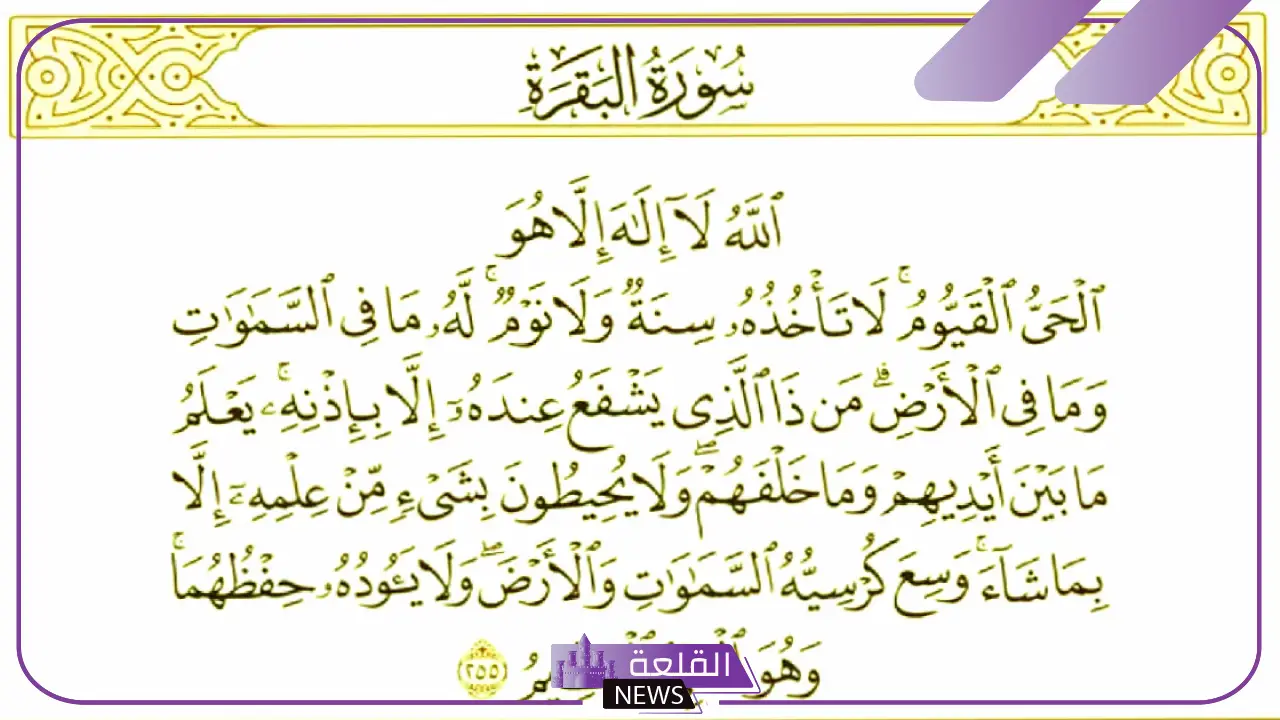 سُورَةُ البَقَرَةِ
ٱللَّهُ لَآ إِلَٰهَ إِلَّا هُوَ
ٱلْحَىُّ ٱلْقَيُّومُ ۚ لَا تَأْخُذُهُۥ سِنَةٌ وَلَا نَوْمٌ ۚ لَّهُۥ مَا فِى ٱلسَّمَٰوَٰتِ
وَمَا فِى ٱلْأَرْضِ ۗ مَن ذَا ٱلَّذِى يَشْفَعُ عِندَهُۥٓ إِلَّا بِإِذْنِهِۦ ۚ يَعْلَمُ
مَا بَيْنَ أَيْدِيهِمْ وَمَا خَلْفَهُمْ ۖ وَلَا يُحِيطُونَ بِشَىْءٍ مِّنْ عِلْمِهِۦٓ إِلَّا
بِمَا شَآءَ ۚ وَسِعَ كُرْسِيُّهُ ٱلسَّمَٰوَٰتِ وَٱلْأَرْضَ ۖ وَلَا يَـُٔودُهُۥ حِفْظُهُمَا ۚ
وَهُوَ ٢٥٥
القلعة
NEWS